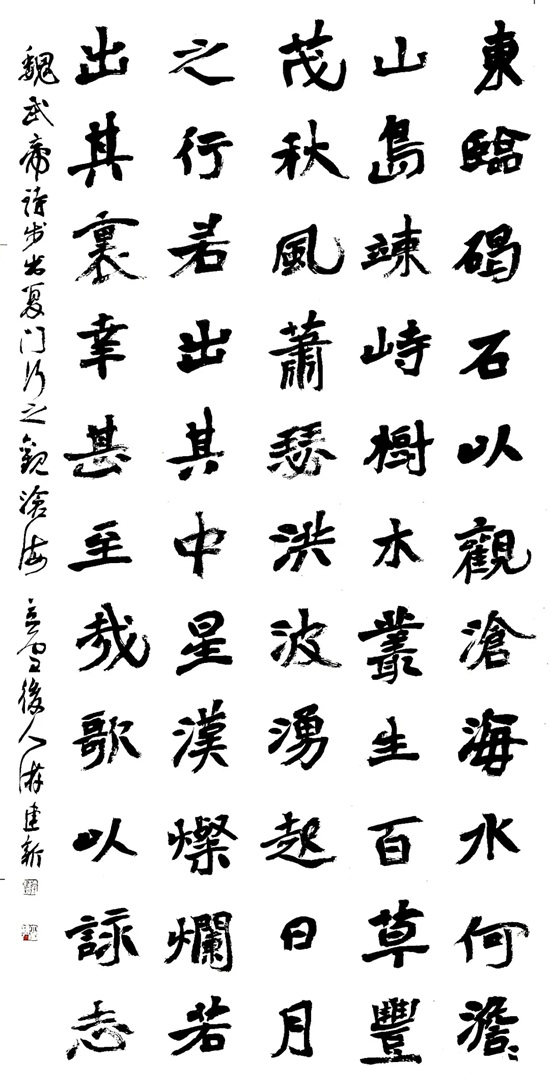 東臨碣石以觀滄海水何澹〻
山島竦峙樹木叢生百草豐
茂秋風蕭瑟洪波湧起日月
之行若出其中星漢燦爛若
出其裏幸甚至哉歌以詠志
魏武帝詩步出夏门行之觀滄海 立雪後人游建新